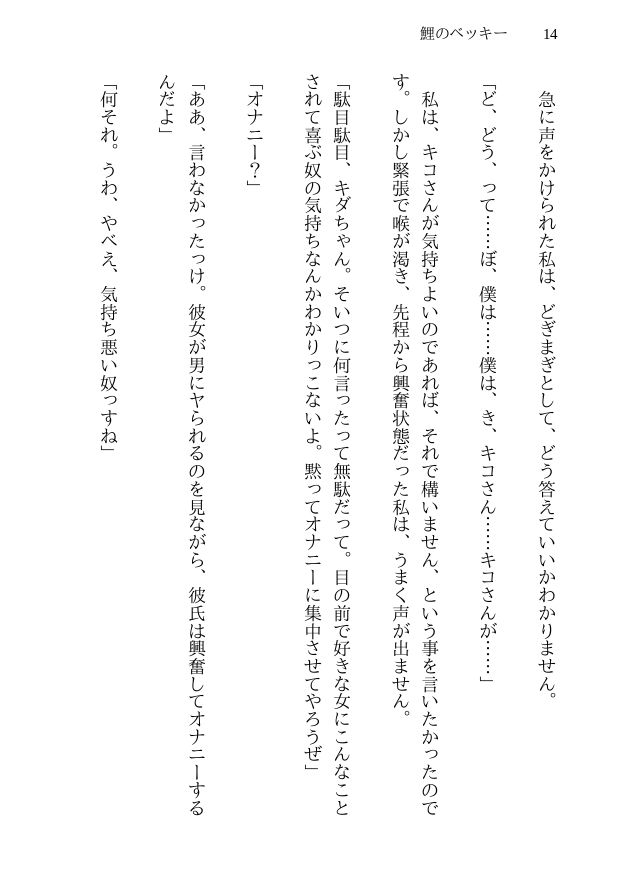 鯉のベッキー　14
　急に声をかけられた私は、どぎまぎとして、どう答えていいかわかりません。
「ど、どう、って……ぼ、僕は……僕は、き、キコさん……キコさんが……」
　私は、キコさんが気持ちよいのであれば、それで構いません、という事を言いたかったので
す。しかし緊張で喉が渇き、先程から興奮状態だった私は、うまく声が出ません。
「駄目駄目、キダちゃん。そいつに何言ったって無駄だって。目の前で好きな女にこんなこと
されて喜ぶ奴の気持ちなんかわかりっこないよ。黙ってオナニーに集中させてやろうぜ」
「オナニー？」
「ああ、言わなかったっけ。彼女が男にヤられるのを見ながら、彼氏は興奮してオナニーする
んだよ」
「何それ。うわ、やべえ、気持ち悪い奴っすね」